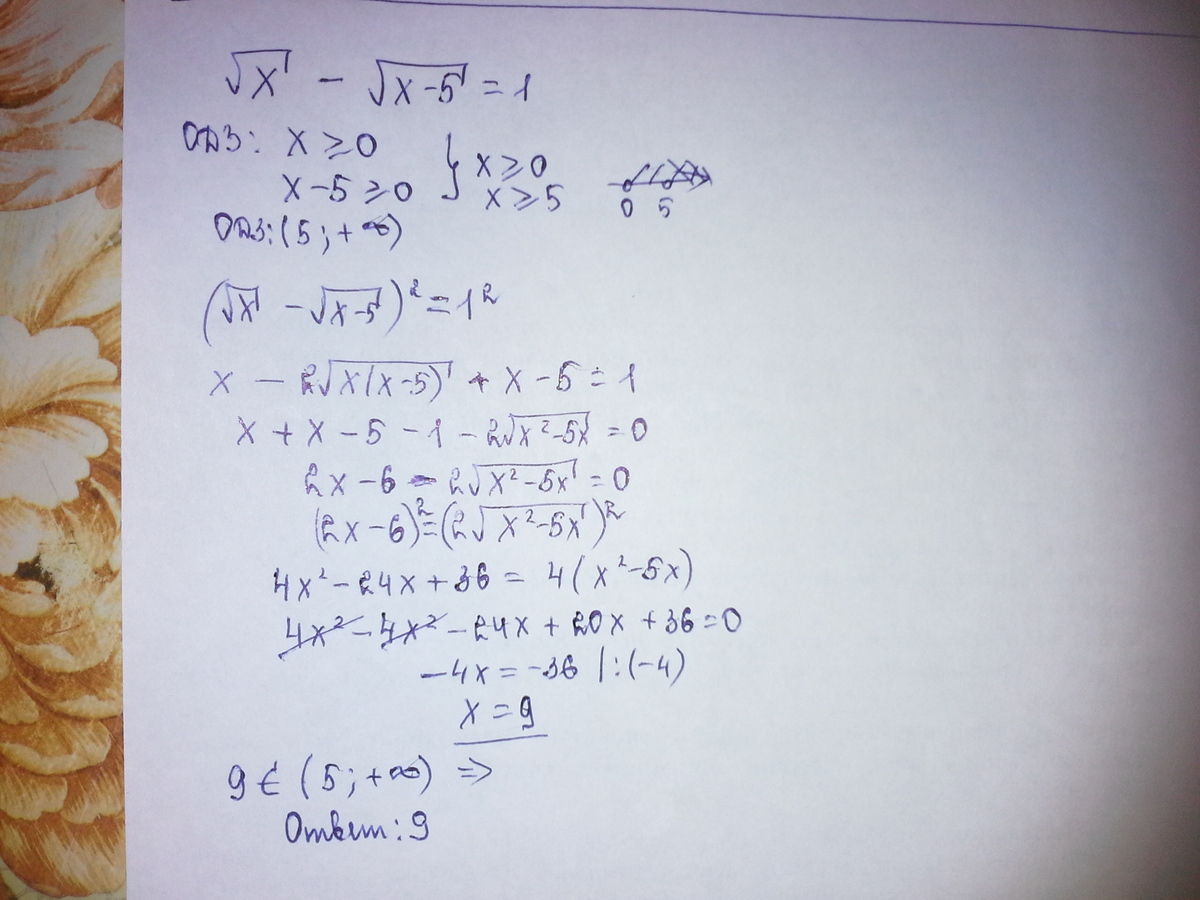 √x - √(x-5) = 1
ОДЗ: x ≥ 0 } x ≥ 0
x - 5 ≥ 0 x ≥ 5 0 5
ОДЗ: (5; +∞)
(√x - √(x-5))² = 1²
x - 2√(x(x-5)) + x - 5 = 1
x + x - 5 - 1 - 2√(x²-5x) = 0
2x - 6 - 2√(x²-5x) = 0
(2x - 6)² = (2√(x²-5x))²
4x² - 24x + 36 = 4(x² - 5x)
4x² - 4x² - 24x + 20x + 36 = 0
-4x = -36 | :(-4)
x = 9
9 ∈ (5; +∞) ⇒
Ответ: 9